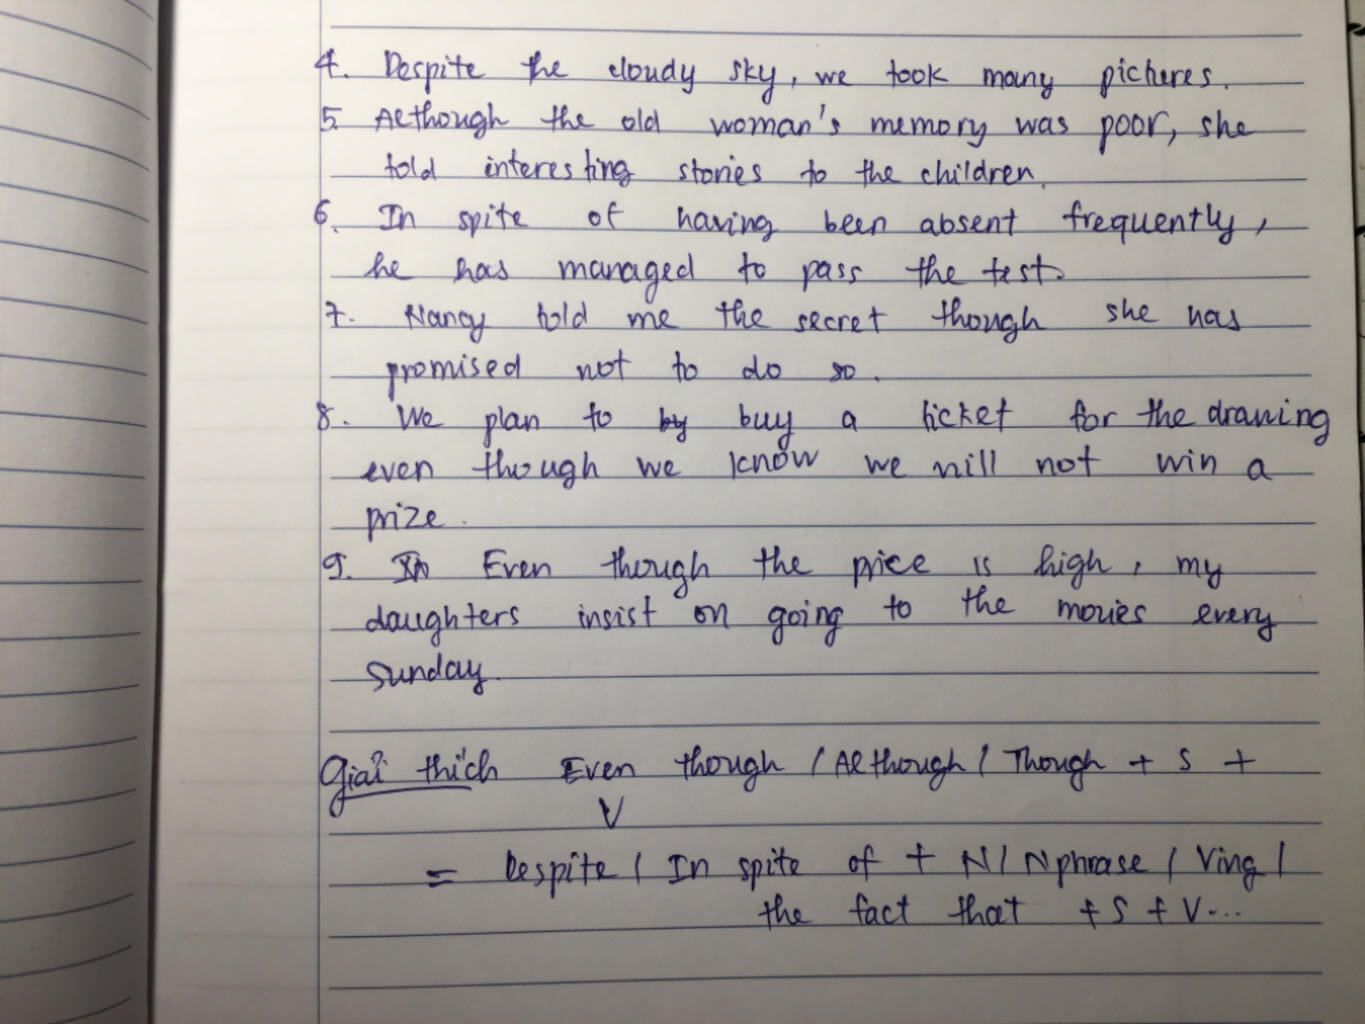 4. Despite the cloudy sky, we took many pictures.
5. Although the old woman's memory was poor, she
told interesting stories to the children.
6. In spite of having been absent frequently,
he has managed to pass the test.
7. Nancy told me the secret though she has
promised not to do so.
8. We plan to by buy a ticket for the drawing
even though we know we will not win a
prize.
9. In Even though the price is high, my
daughters insist on going to the movies every
Sunday.
Giải thích Even though / Although / Though + S +
V
= Despite / In spite of + N / N phrase / Ving /
the fact that + S + V...